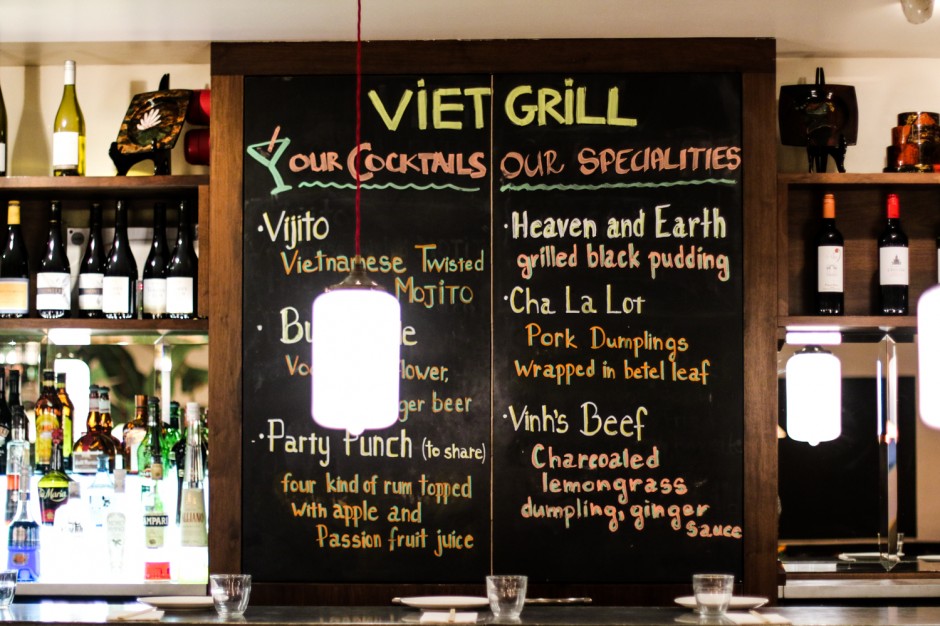 VIET GRILL
OUR COCKTAILS
· Vijito
Vietnamese Twisted
MOJITO
ger beer
· Party Punch (to share)
four kind of rum topped
with apple and
Passion fruit juice
OUR SPECIALITIES
· Heaven and Earth
grilled black pudding
· Cha La Lot
Pork Dumplings
wrapped in betel leaf
· Vinh's Beef
Charcoaled
lemongrass
dumpling, ginger
sauce